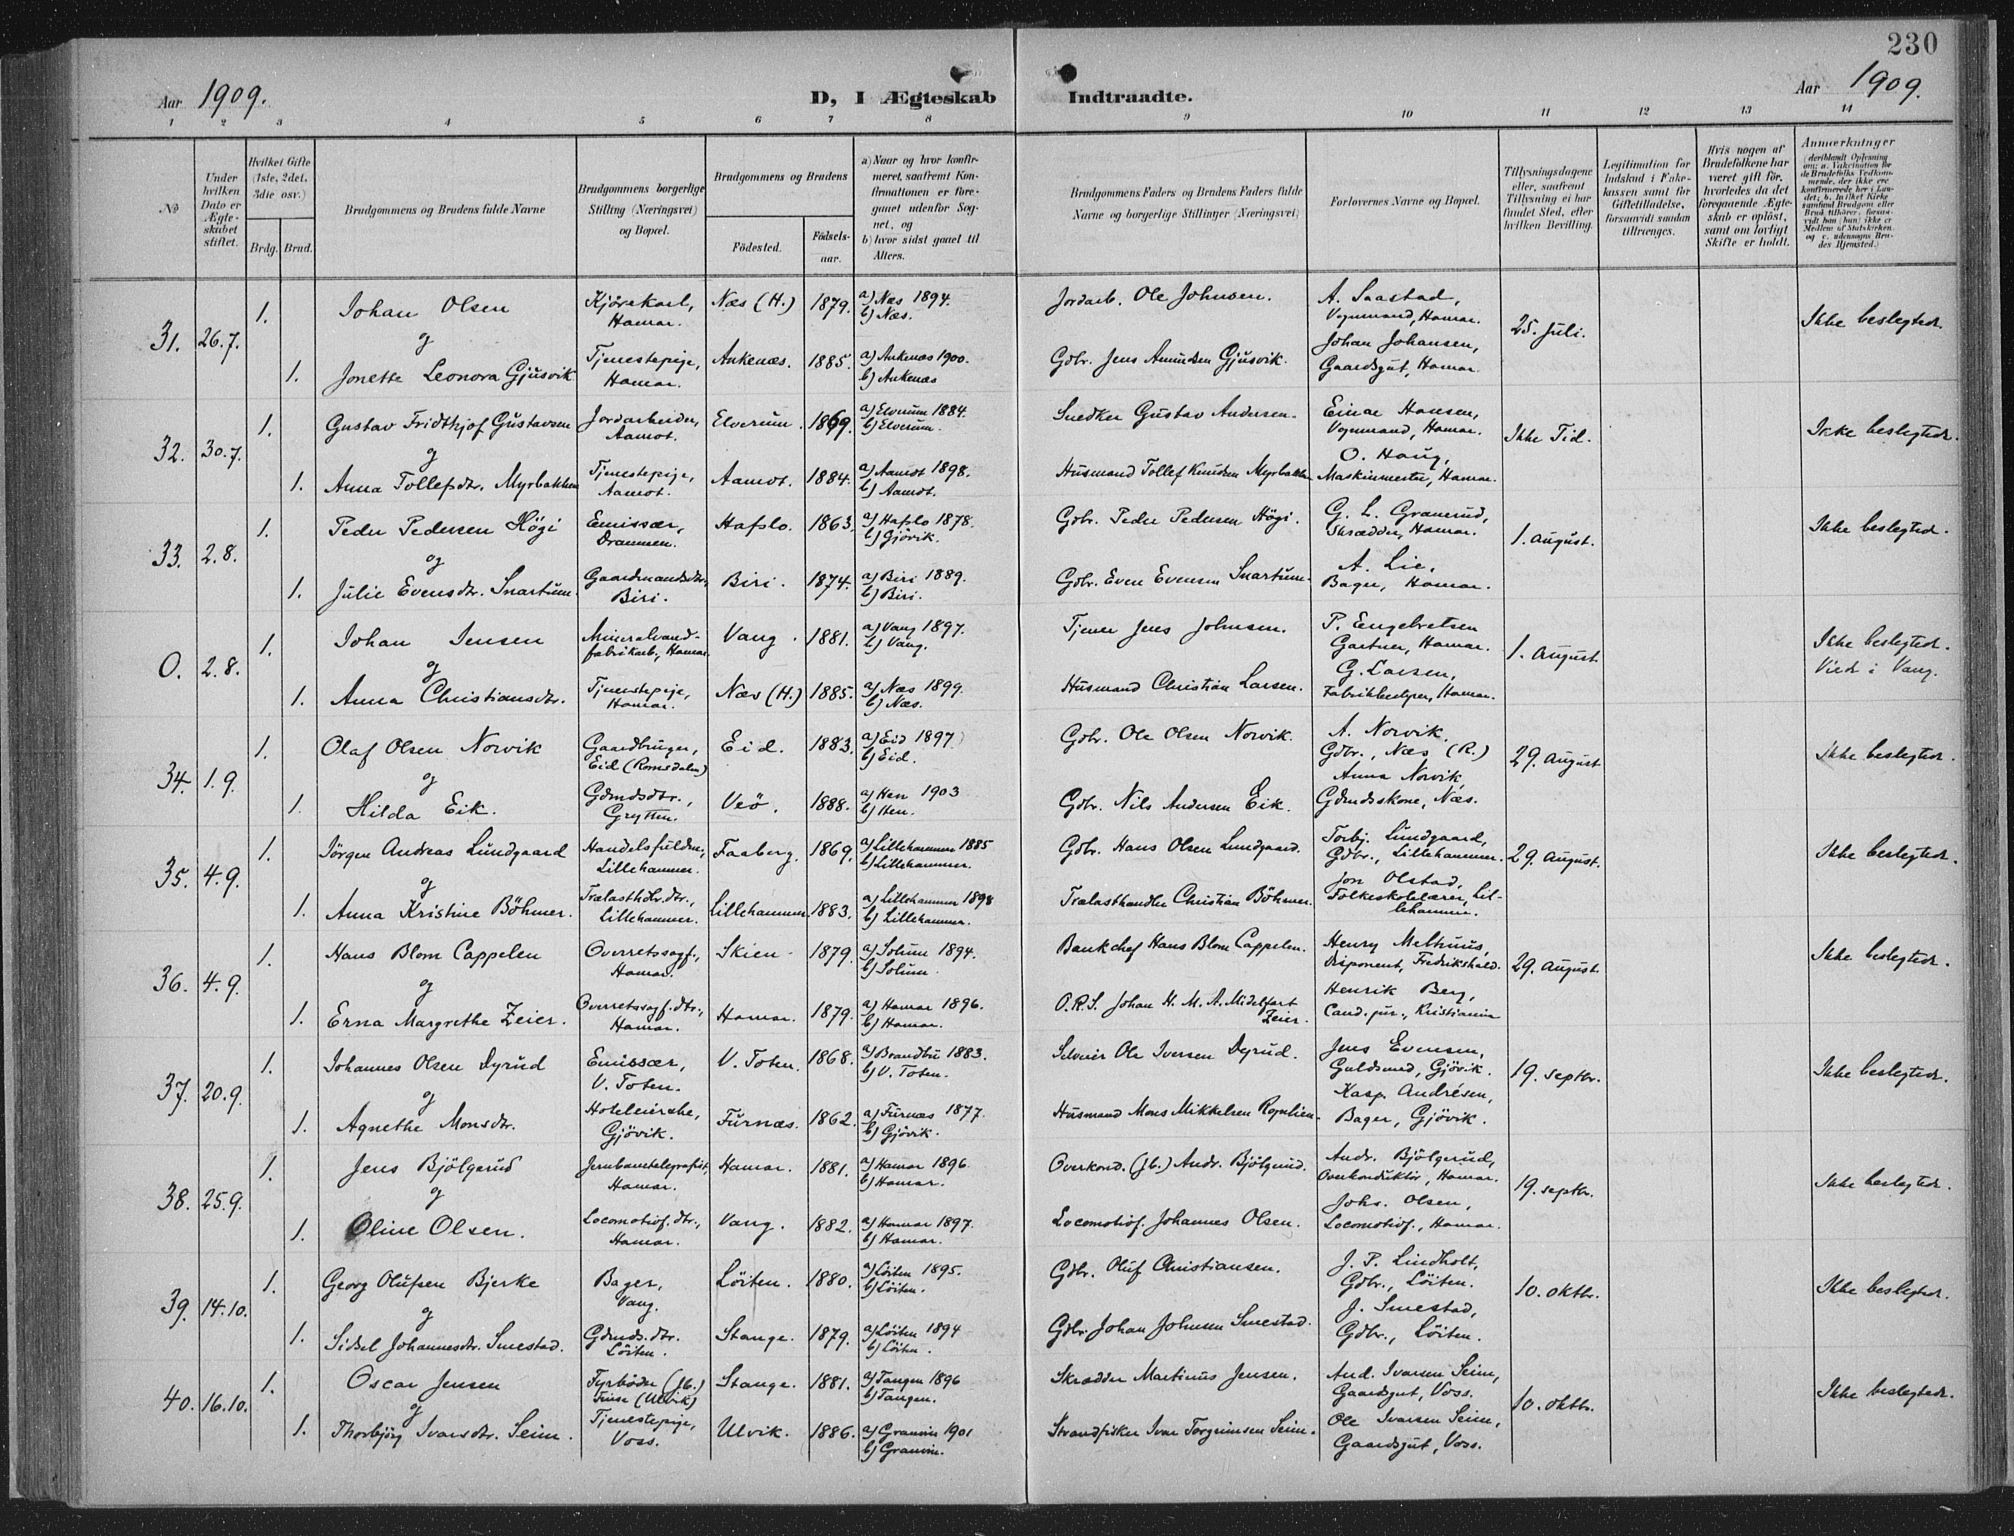 230
Aar 1909. D, I Ægteskab Indtraadte. Aar 1909.
1 2 3 4 5 6 7 8 9 10 11 12 13 14
No
Under hvilken Dato er Ægteskabet stiftet.
Hvilket Gifte (1ste, 2det, 3die osv.)
Brdg. Brud.
Brudgommens og Brudens fulde Navne
Brudgommens borgerlige Stilling (Næringsvei) og Bopæl.
Brudgommens og Brudens
Födested.
Födselsaar.
a) Naar og hvor konfirmeret, saafremt Konfirmationen er foregaaet udenfor Sognet, og
b) hvor sidst gaaet til Alters.
Brudgommens Faders og Brudens Faders fulde Navne og borgerlige Stillinger (Næringsvei)
Forlovernes Navne og Bopæl.
Tillysningsdagene eller, saafremt Tillysning ei har fundet Sted, efter hvilken Bevilling.
Legitimation for Indskud i Enkekassen samt for Giftetilladelse, forsaavidt saadan tiltrænges.
Hvis nogen af Brudefolkene har været gift før, hvorledes da det foregaaende Ægteskab er oplöst, samt om lovligt Skifte er holdt.
Anmærkninger
31. 26.7. 1. Johan Olsen Kjörekarl, Hamar. Næs (H.) 1879. a) Næs 1894. b) Næs. Jordarb. Ole Johnsen. A. Saastad, Vognmand, Hamar. 25. Juli. Ikke beslegtede.
og
1. Jonette Leonora Gjüsvik Tjenestepige, Hamar. Ankenæs. 1885. a) Ankenæs 1900. b) Ankenæs Gdbr. Jens Amundsen Gjüsvik. Johan Johansen, Gaardsgut, Hamar.
32. 30.7. 1. Gustav Fridthjof Gustavsen Jordarbeider, Aamot. Elverum. 1869. a) Elverum 1884. b) Elverum. Snedker Gustav Andersen. Einar Hansen, Vognmand, Hamar. Ikke Tid. Ikke beslegtede.
og
1. Anna Tollefsdtr. Myrbakken Tjenestepige, Aamot. Aamot. 1884. a) Aamot 1898. b) Aamot. Husmand Tollef Knudsen Myrbakken O. Haug, Maskinmester, Hamar.
33. 2.8. 1. Peder Pedersen Högi Emissær, Drammen. Hafslo. 1863. a) Hafslo 1878. b) Gjövik. Gdbr. Peder Pedersen Högi. G. L. Granerud, Skrædder, Hamar. 1. august. Ikke beslegtede.
og
1. Julie Evensdtr. Snartum. Gaardmandsdtr., Biri. Biri. 1874. a) Biri 1889. b) Biri. Gdbr. Even Evensen Snartum. A. Lie, Bager, Hamar.
0. 2.8. 1. Johan Jensen Mineralvandfabrikarb., Hamar. Vang. 1881. a) Vang 1897. b) Vang. Tjener Jens Johnsen. P. Engebretsen Gartner, Hamar. 1. august. Ikke beslegtede. Viede i Vang.
og
1. Anna Christiansdtr. Tjenestepige, Hamar. Næs (H.) 1885. a) Næs 1899. b) Næs. Husmand Christian Larsen. G. Larsen, Fabrikbestyrer, Hamar.
34. 1.9. 1. Olaf Olsen Norvik Gaardbruger, Eid (Romsdalen) Eid. 1883. a) Eid 1897. b) Eid. Gdbr. Ole Olsen Norvik. A. Norvik, Gdbr., Næs (R.) 29. august Ikke beslegtede.
og
1. Hilda Eik. Gdmdsdtr., Grytten. Veö. 1888. a) Hen 1903 b) Hen. Gdbr. Nils Andersen Eik. Anna Norvik, Gdmdskone, Næs.
35. 4.9. 1. Jörgen Andreas Lundgaard Handelsfuldm., Lillehammer. Faaberg. 1869. a) Lillehammer 1885 b) Lillehammer. Gdbr. Hans Olsen Lundgaard. Torbj. Lundgaard, Gdbr., Lillehammer. 29. august. Ikke beslegtede.
og
1. Anna Kristine Böhmer. Trælasthdlr.dtr., Lillehammer. Lillehammer. 1883. a) Lillehammer 1898 b) Lillehammer. Trælasthandler Christian Böhmer. Jon Olstad, Folkeskolelærer, Lillehammer.
36. 4.9. 1. Hans Blom Cappelen Overretssagf., Hamar. Skien. 1879. a) Solum 1894. b) Solum. Bankchef Hans Blom Cappelen. Henry Disponent, Fredrikshald. 29. august. Ikke beslegtede.
og
1. Erna Margrethe Zeier. Overretssagf.dtr., Hamar. Hamar. 1879. a) Hamar 1896. b) Hamar. O.R.S. Johan H. M. A. Midelfart Zeier. Henrik Berg, Cand. jur., Kristiania
37. 20.9. 1. Johannes Olsen Dyrud Emissær, V. Toten. V. Toten. 1868. a) Brandbu 1883. b) V. Toten. Selveier Ole Iversen Dyrud. Jens Evensen, Guldsmed, Gjövik. 19. septbr. Ikke beslegtede.
og
1. Agnethe Monsdtr. Hoteleierske, Gjövik. Furnæs. 1862. a) Furnæs 1877. b) Gjövik. Husmand Mons Mikkelsen Kasp. Andrésen, Bager, Gjövik.
38. 25.9. 1. Jens Bjölgerud Jernbanetelegrafist, Hamar. Hamar. 1881. a) Hamar 1896. b) Hamar. Overkond. (Jb.) Andr. Bjölgerud. Andr. Bjölgerud, Overkonduktör, Hamar. 19. septbr. Ikke beslegtede.
og
1. Oline Olsen. Locomotivf. dtr., Hamar. Vang. 1882. a) Hamar 1897. b) Hamar. Locomotivf. Johannes Olsen. Johs. Olsen, Locomotivf., Hamar.
39. 14.10. 1. Georg Olufsen Bjerke Bager, Vang. Löiten. 1880. a) Löiten 1895. b) Löiten. Gdbr. Oluf Christiansen. J. P. Lindholt, Gdbr., Löiten. 10. oktbr. Ikke beslegtede.
og
1. Sidsel Johannesdtr. Smestad. Gdmds. dtr. Löiten. Stange. 1879. a) Löiten 1894 b) Löiten. Gdbr. Johan Johnsen Smestad. J. Smestad, Gdbr., Löiten.
40. 16.10. 1. Oscar Jensen Fyrböder (Jb.) Finse (Ulvik) Stange. 1881. a) Tangen 1896 b) Tangen. Skrædder Martinus Jensen. And. Ivarsen Seim, Gaardsgut, Voss. 10. oktbr. Ikke beslegtede.
og
1. Thorbjörg Ivarsdtr. Seim. Tjenestepige, Voss. Ulvik. 1886. a) Granvin 1901 b) Granvin. Strandfisker Ivar Torgeimsen Seim. Ole Ivarsen Seim, Gaardsgut, Voss.